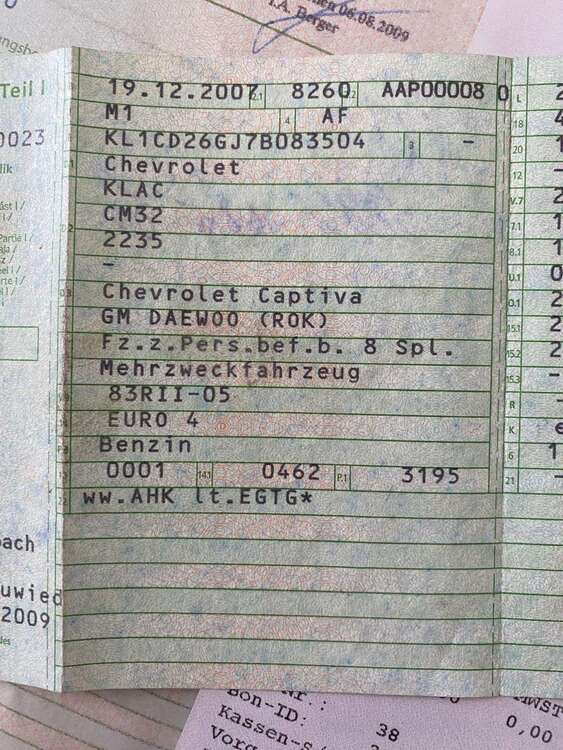 men 06.08.2009
I.A. Berger
Teil I
19.12.2007 2.1 8260 2.2 AAP00008 0 L
M1 4 AF 18
0023 KL1CD26GJ7B083504 3 - 20
Chevrolet 12
KLAC V.7
CM32 7.1
2235 8.1
- U.1
Chevrolet Captiva O.1
GM DAEWOO (ROK) 15.1
Fz.z.Pers.bef.b. 8 Spl. 15.2
Mehrzweckfahrzeug 15.3
83RII-05 R
EURO 4 K
Benzin 6
0001 14.1 0462 P.1 3195 21
22 ww.AHK lt.EGTG*
bach
uwied
2009
Nr.:
MWST
Bon-ID: 38 0,00
Kassen-S
Vorg